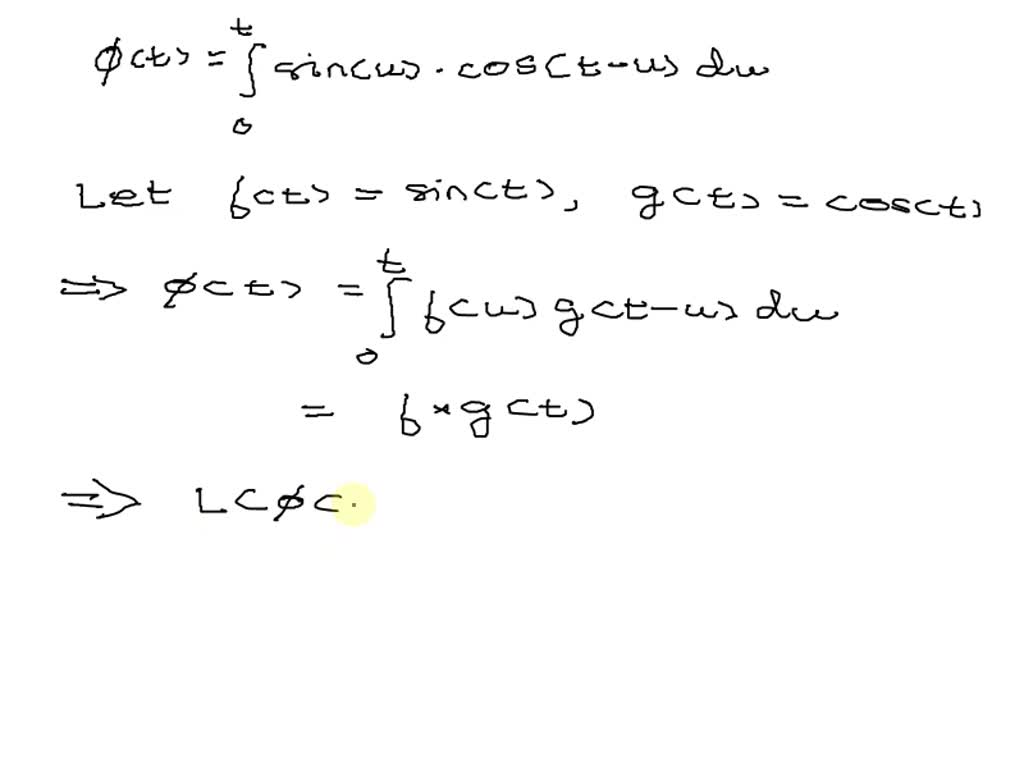 ϕ(t) = ∫₀ᵗ sin(u) · cos(t-u) du
Let f(t) = sin(t), g(t) = cos(t)
⇒ ϕ(t) = ∫₀ᵗ f(u) g(t-u) du
= f * g (t)
⇒ L(ϕ(